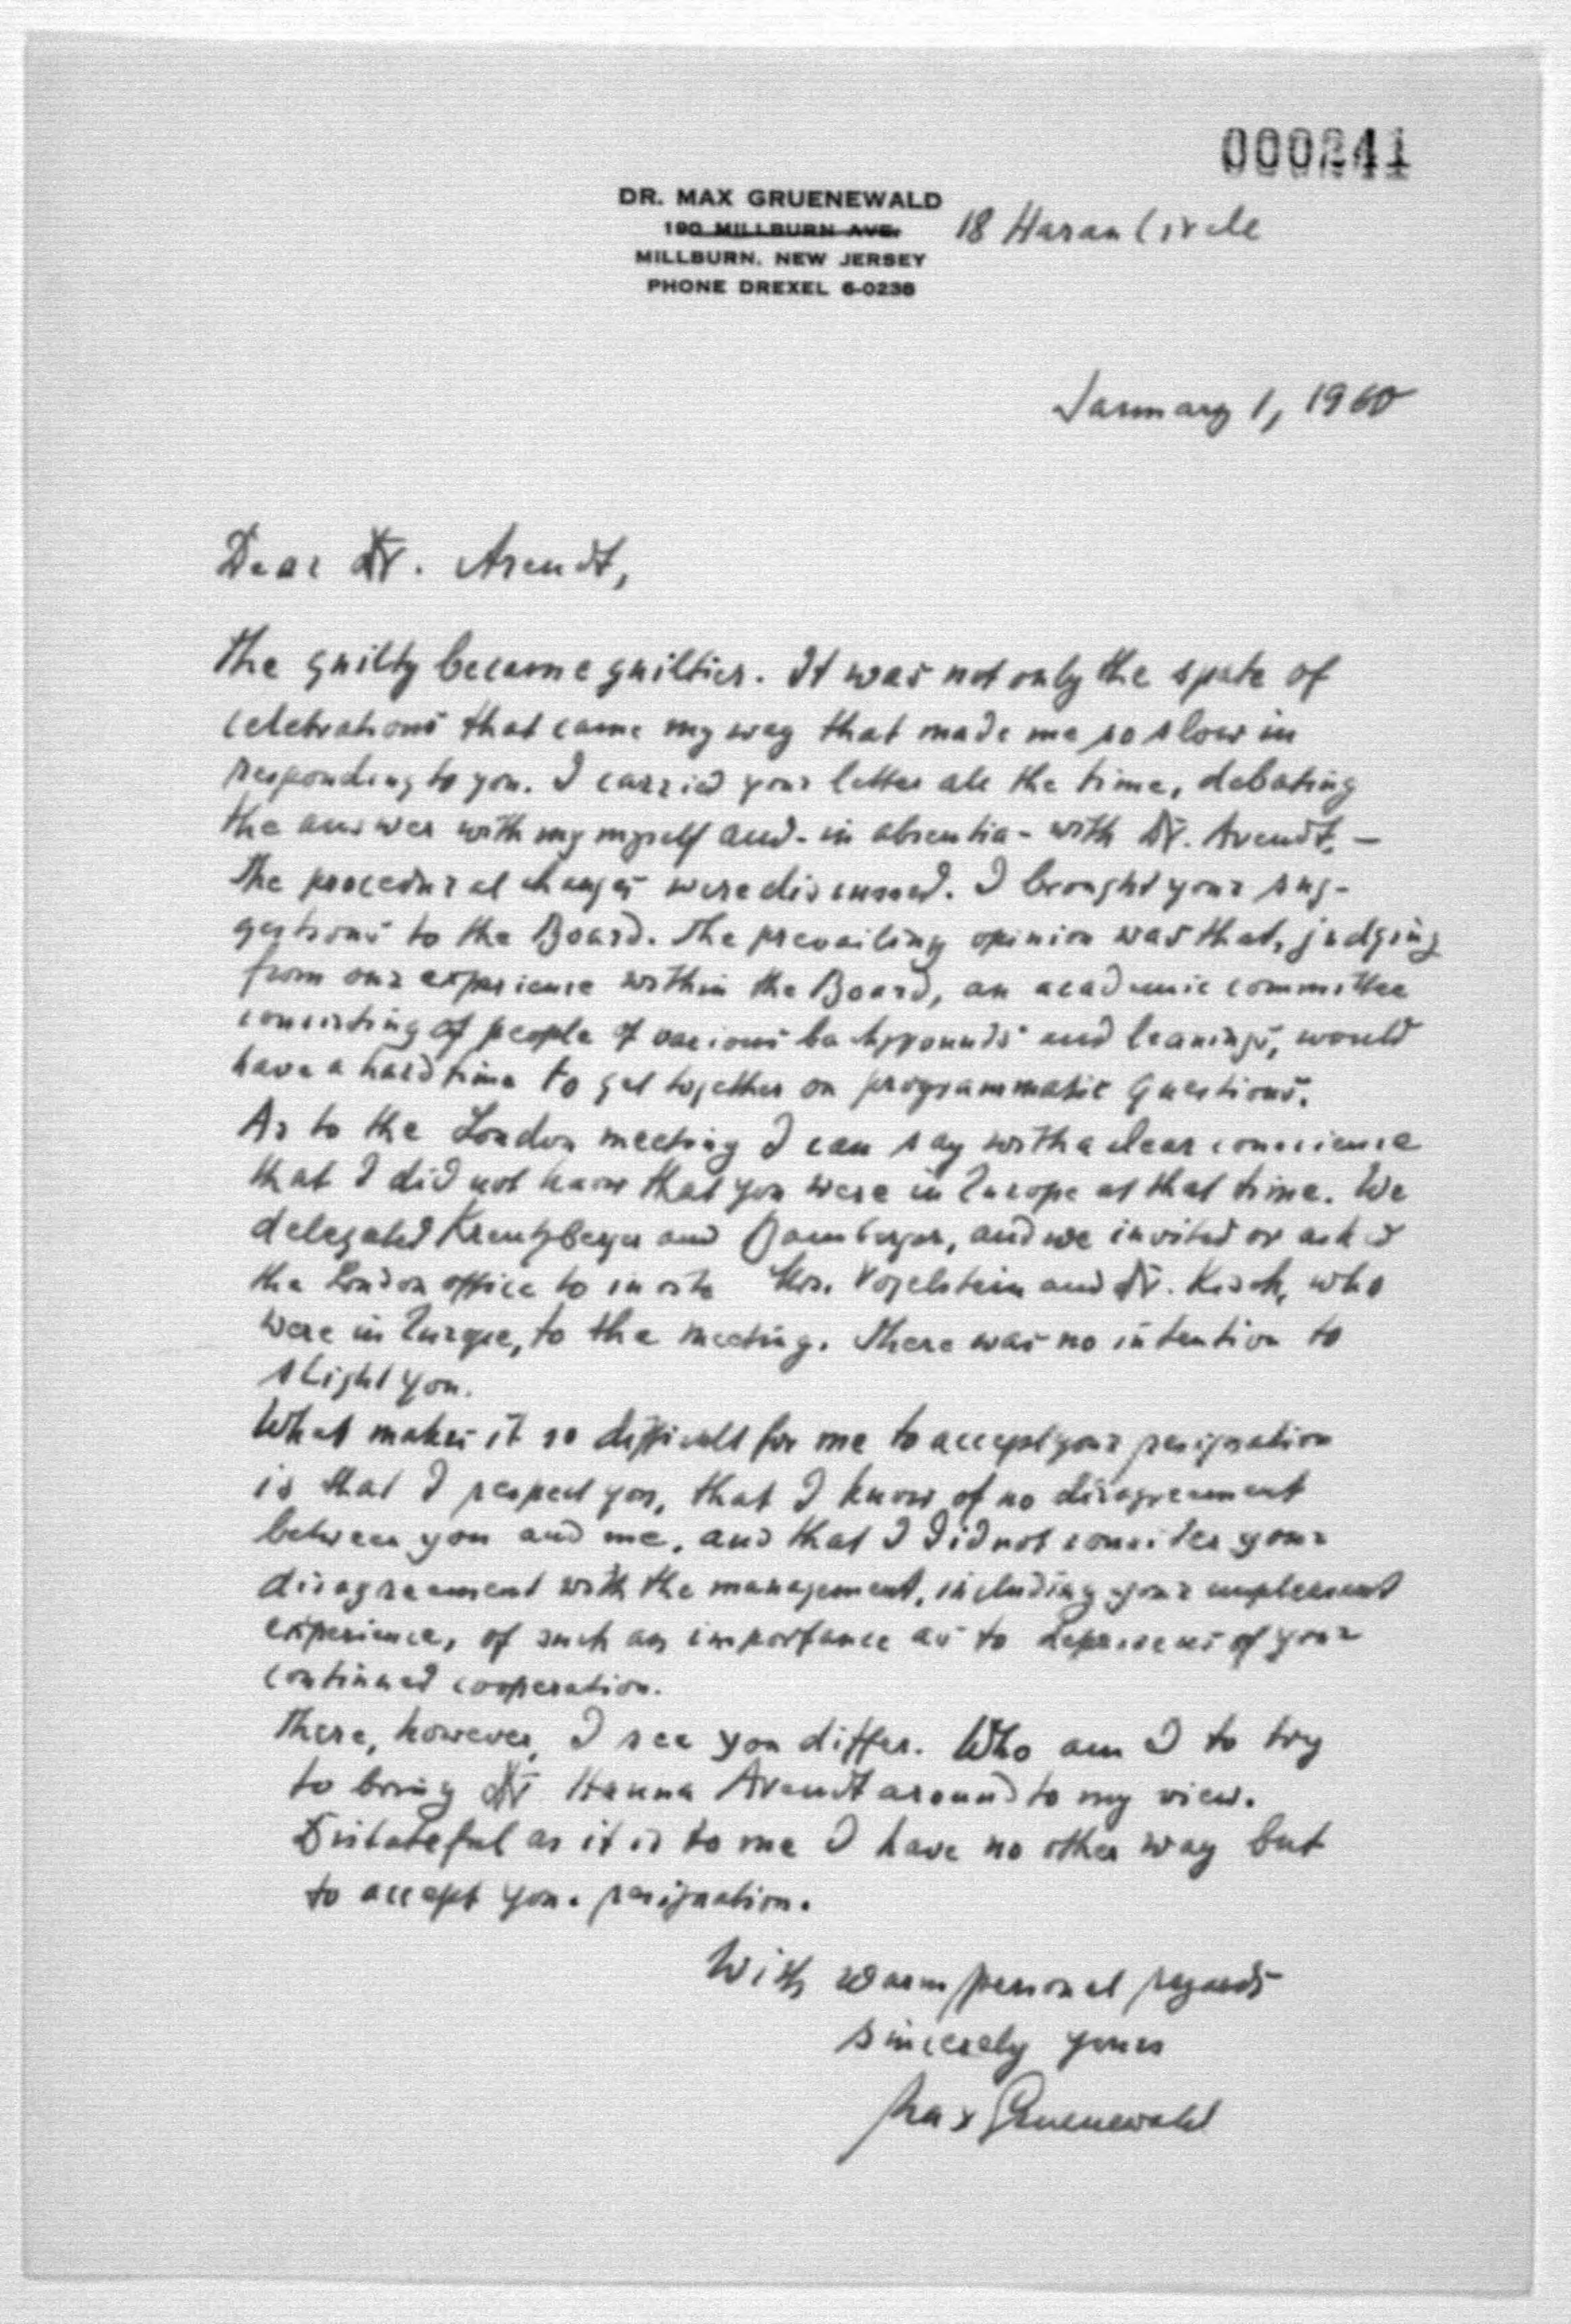 000241
DR. MAX GRUENEWALD
190 MILLBURN AVE. 18 Haran Circle
MILLBURN, NEW JERSEY
PHONE DREXEL 6-0238
January 1, 1960
Dear Dr. Arendt,
The guilty became guiltier. It was not only the spate of
celebrations that came my way that made me so slow in
responding to you. I carried your letter all the time, debating
the answer with my myself and - in absentia - with Dr. Arendt. -
The procedural changes were discussed. I brought your sug-
gestions to the Board. The prevailing opinion was that, judging
from our experience within the Board, an academic committee
consisting of people of various backgrounds and leanings, would
have a hard time to get together on programmatic questions.
As to the London meeting I can say with a clear conscience
that I did not know that you were in Europe at that time. We
delegated Kreutzberger and Bamberger, and we invited or asked
the London office to invite Mrs. Vogelstein and Dr. Kisch, who
were in Europe, to the meeting. There was no intention to
slight you.
What makes it so difficult for me to accept your resignation
is that I respect you, that I know of no disagreement
between you and me, and that I did not consider your
disagreement with the management, including your unpleasant
experience, of such an importance as to deprive us of your
continued cooperation.
There, however, I see you differ. Who am I to try
to bring Dr Hanna Arendt around to my view.
Distateful as it is to me I have no other way but
to accept your resignation.
With warm personal regards
sincerely yours
Max Gruenewald